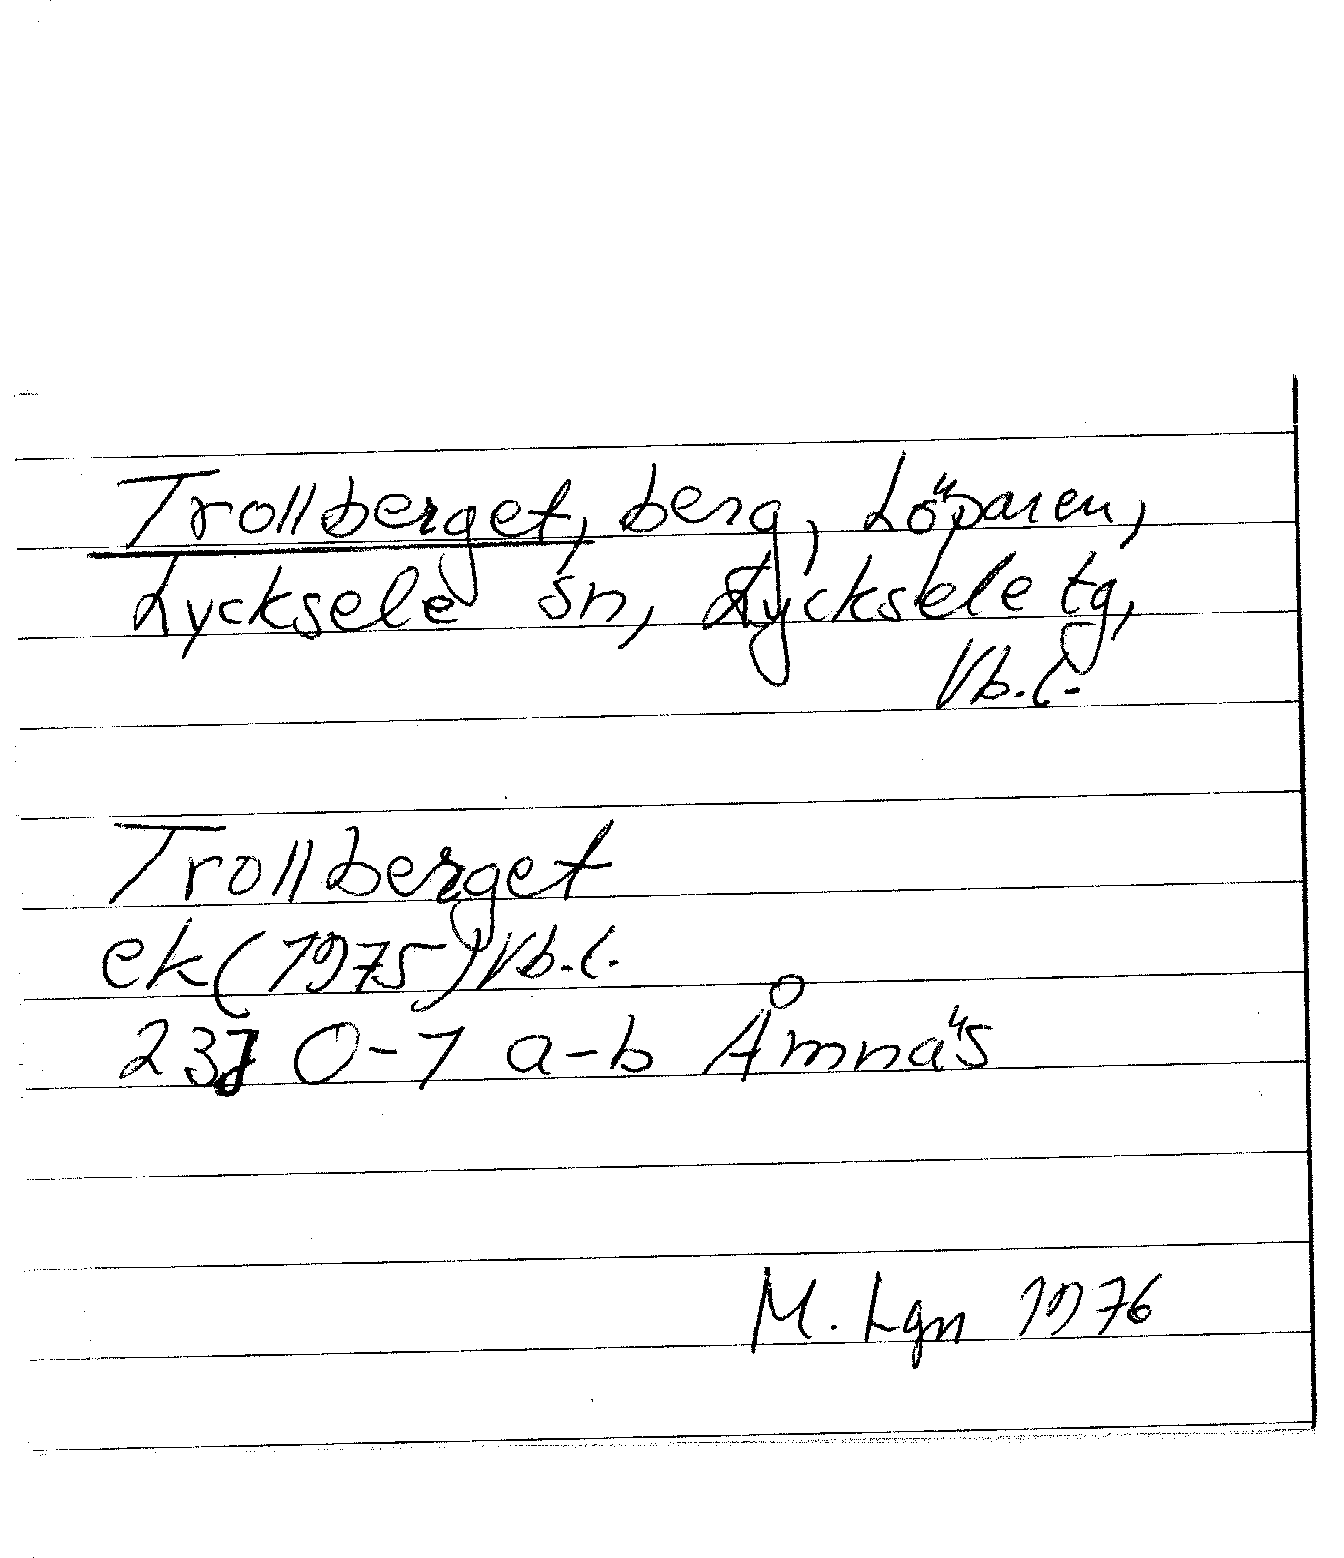 Trollberget, berg, Löparen,
Lycksele sn, Lycksele tg,
Vb.l.
Trollberget
ek (1975) Vb.l.
23J 0-1 a-b Åmnäs
M. Lgn 1976